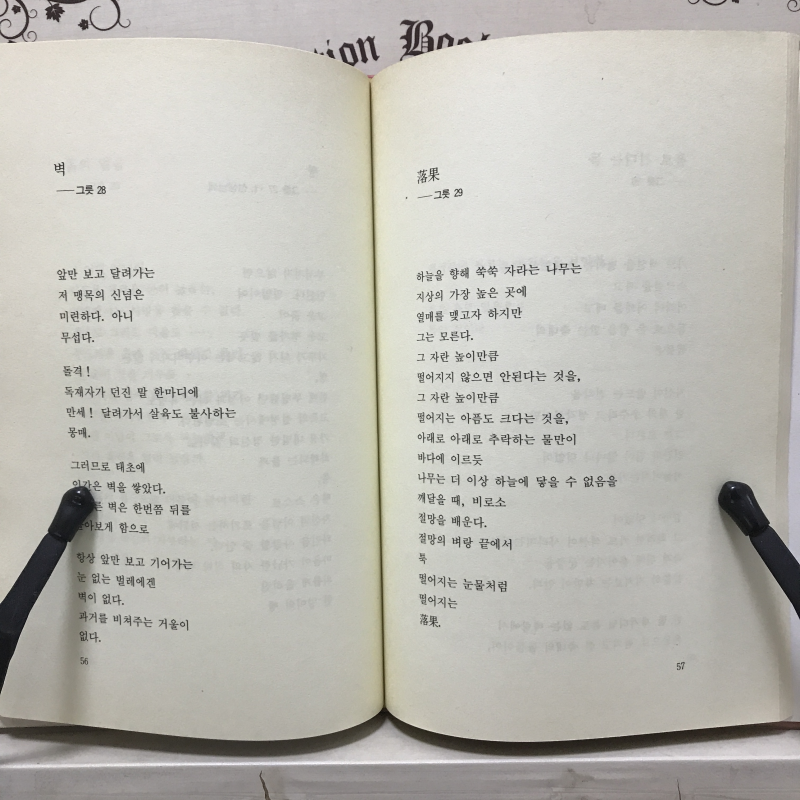 벽
── 그릇 28
앞만 보고 달려가는
저 맹목의 신념은
미련하다. 아니
무섭다.
돌격!
독재자가 던진 말 한마디에
만세! 달려가서 살육도 불사하는
몽매.
그러므로 태초에
인간은 벽을 쌓았다.
벽은 한번쯤 뒤를
돌아보게 함으로
항상 앞만 보고 기어가는
눈 없는 벌레에겐
벽이 없다.
과거를 비쳐주는 거울이
없다.
56
落果
── 그릇 29
하늘을 향해 쑥쑥 자라는 나무는
지상의 가장 높은 곳에
열매를 맺고자 하지만
그는 모른다.
그 자란 높이만큼
떨어지지 않으면 안된다는 것을,
그 자란 높이만큼
떨어지는 아픔도 크다는 것을,
아래로 아래로 추락하는 물만이
바다에 이르듯
나무는 더 이상 하늘에 닿을 수 없음을
깨달을 때, 비로소
절망을 배운다.
절망의 벼랑 끝에서
툭
떨어지는 눈물처럼
떨어지는
落果.
57